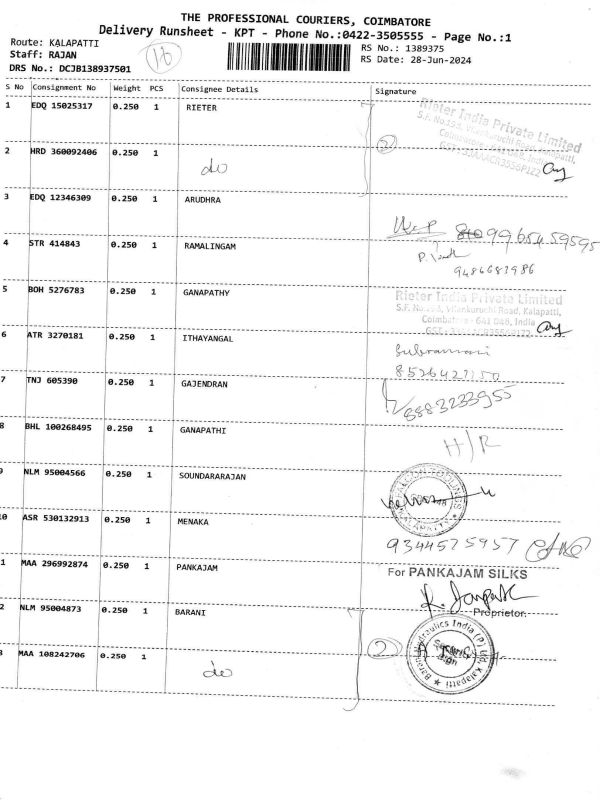 THE PROFESSIONAL COURIERS, COIMBATORE
Delivery Runsheet - KPT - Phone No.:0422-3505555 - Page No.:1
Route: KALAPATTI
Staff: RAJAN
DRS No.: DCJB138937501
16
RS No.: 1389375
RS Date: 28-Jun-2024
S No Consignment No Weight PCS Consignee Details Signature
1 EDQ 15025317 0.250 1 RIETER
Rieter India Private Limited
2 HRD 360092406 0.250 1 do
2
3 EDQ 12346309 0.250 1 ARUDHRA
9965459595
4 STR 414843 0.250 1 RAMALINGAM
9486681986
5 BOH 5276783 0.250 1 GANAPATHY
Rieter India Private Limited
S.F. No. Vilankuruchi Road, Kalapatti,
Coimbatore - 641 048, India
6 ATR 3270181 0.250 1 ITHAYANGAL
Subramani
7 TNJ 605390 0.250 1 GAJENDRAN
8883233955
8 BHL 100268495 0.250 1 GANAPATHI
H/R
9 NLM 95004566 0.250 1 SOUNDARARAJAN
FALCON TOOLINGS
KALAPATTI
10 ASR 530132913 0.250 1 MENAKA
9344575957
1 MAA 296992874 0.250 1 PANKAJAM
For PANKAJAM SILKS
Proprietor.
2 NLM 95004873 0.250 1 BARANI
Barani Hydraulics India (P) Ltd, Kalapatti
3 MAA 108242706 0.250 1 do
2